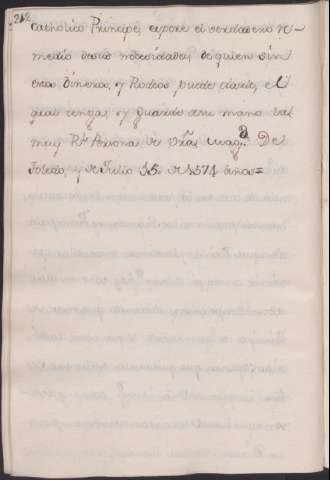 212
catholico Principe, espere el verdadero re-
medio destas necesidades, de quien sin
otros Dineros, y Rodeos puede darle, el
qual tenga, y guarde en su mano la
muy Rl. Persona de vrãs. Magd. De
Toledo, y de Julio 15. de 1571 años=